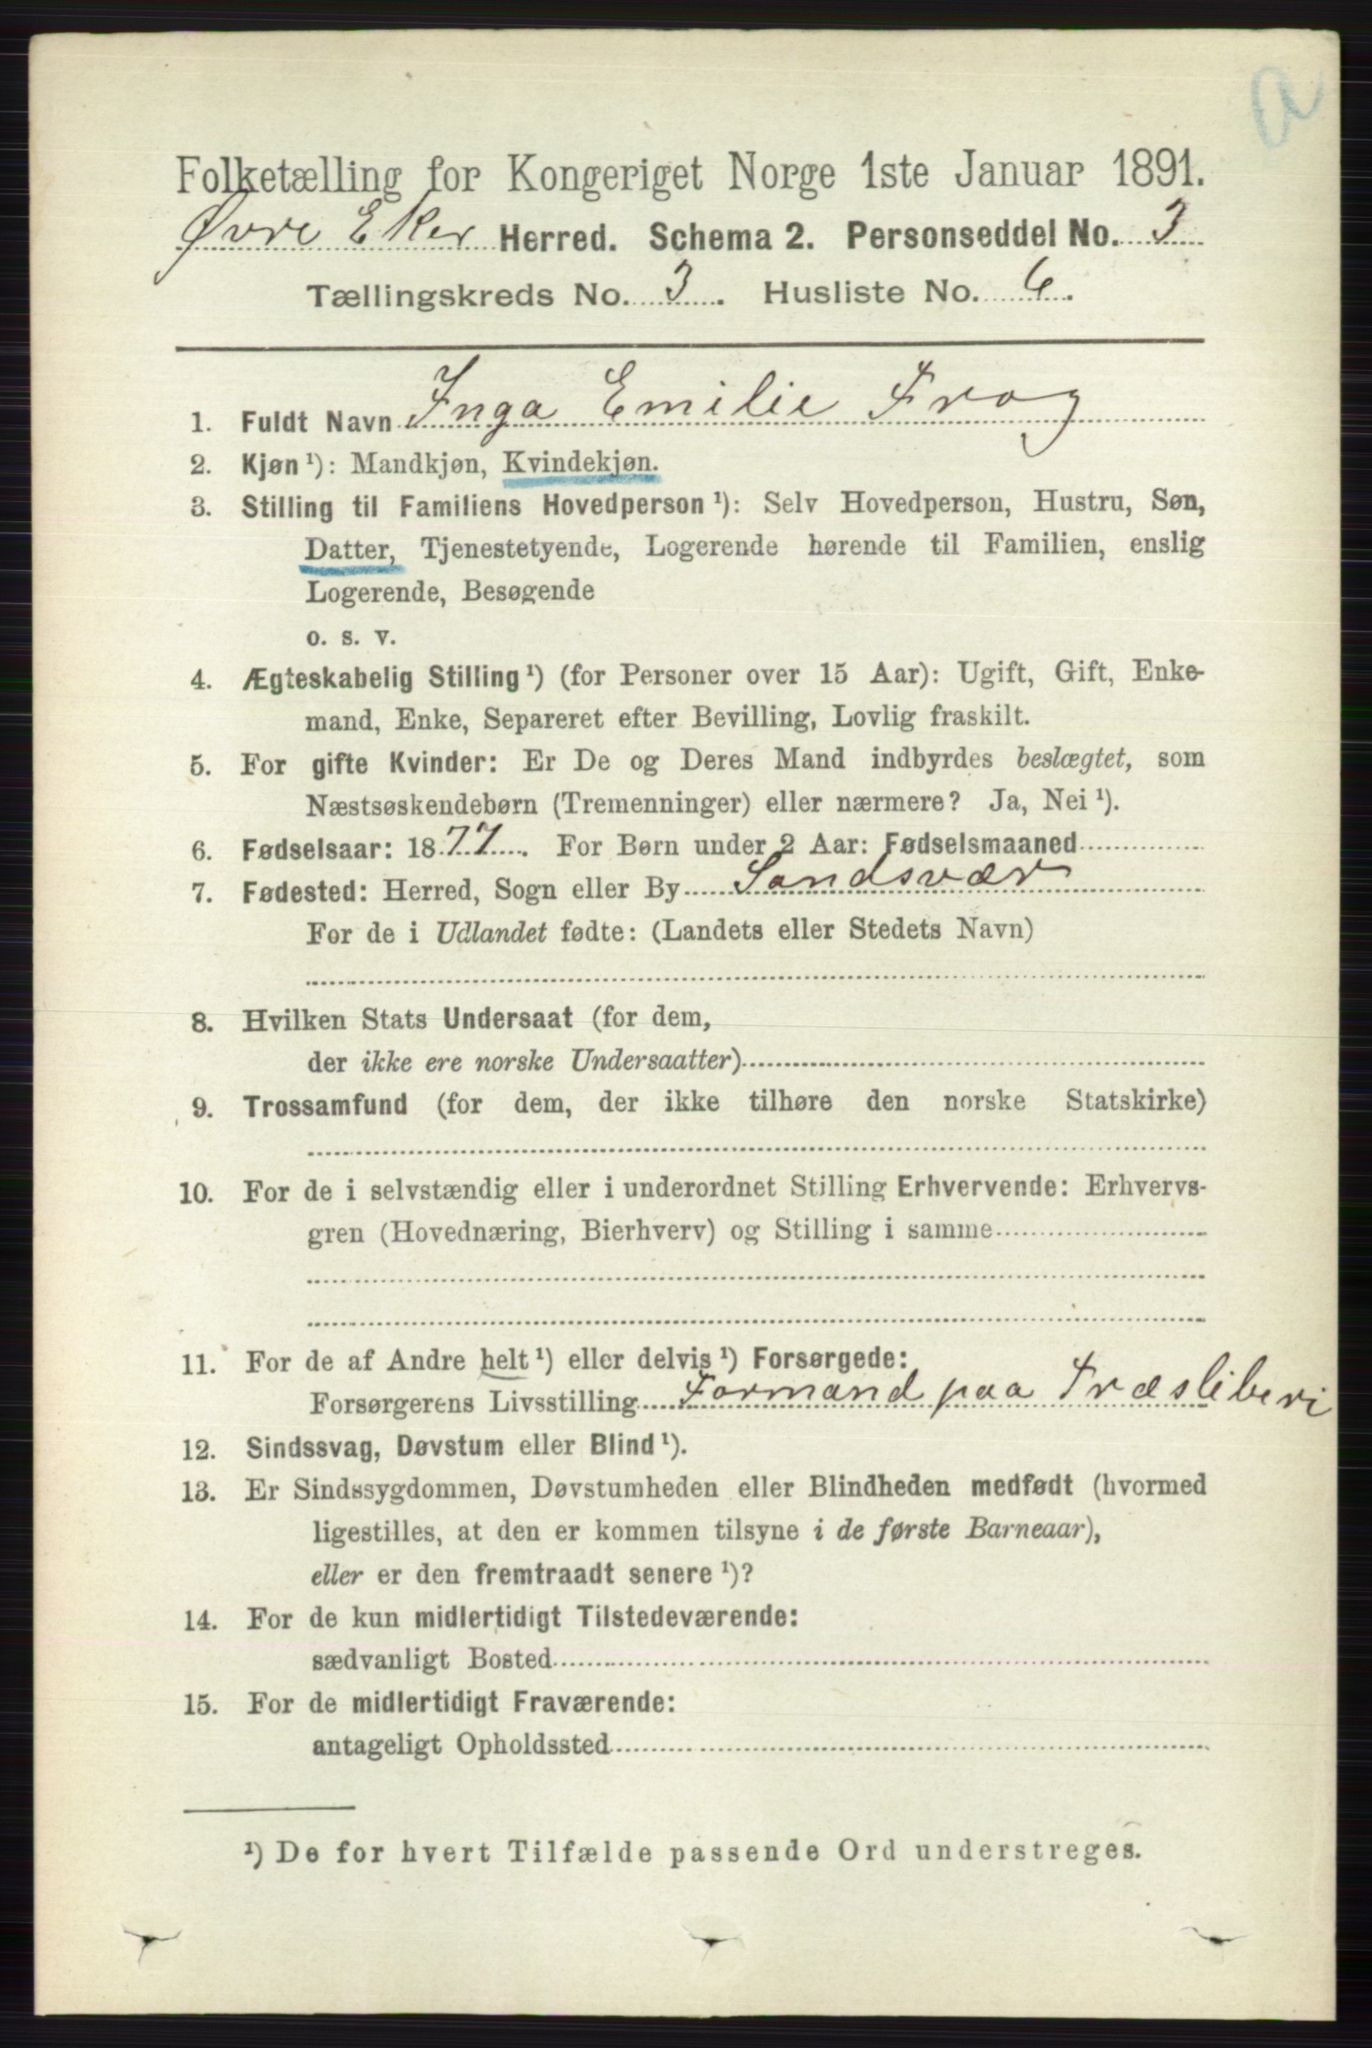 a
Folketælling for Kongeriget Norge 1ste Januar 1891.
Øvre Eker Herred. Schema 2. Personseddel No. 3
Tællingskreds No. 3. Husliste No. 6.
1. Fuldt Navn Inga Emilie Frog
2. Kjøn ¹): Mandkjøn, Kvindekjøn.
3. Stilling til Familiens Hovedperson ¹): Selv Hovedperson, Hustru, Søn,
Datter, Tjenestetyende, Logerende hørende til Familien, enslig
Logerende, Besøgende
o. s. v.
4. Ægteskabelig Stilling ¹) (for Personer over 15 Aar): Ugift, Gift, Enke-
mand, Enke, Separeret efter Bevilling, Lovlig fraskilt.
5. For gifte Kvinder: Er De og Deres Mand indbyrdes beslægtet, som
Næstsøskendebørn (Tremenninger) eller nærmere? Ja, Nei ¹).
6. Fødselsaar: 1877. For Børn under 2 Aar: Fødselsmaaned
7. Fødested: Herred, Sogn eller By Sandsvær
For de i Udlandet fødte: (Landets eller Stedets Navn)
8. Hvilken Stats Undersaat (for dem,
der ikke ere norske Undersaatter)
9. Trossamfund (for dem, der ikke tilhøre den norske Statskirke)
10. For de i selvstændig eller i underordnet Stilling Erhvervende: Erhvervs-
gren (Hovednæring, Bierhverv) og Stilling i samme
11. For de af Andre helt ¹) eller delvis ¹) Forsørgede:
Forsørgerens Livsstilling Formand paa Træsliberi
12. Sindssvag, Døvstum eller Blind ¹).
13. Er Sindssygdommen, Døvstumheden eller Blindheden medfødt (hvormed
ligestilles, at den er kommen tilsyne i de første Barneaar),
eller er den fremtraadt senere ¹)?
14. For de kun midlertidigt Tilstedeværende:
sædvanligt Bosted
15. For de midlertidigt Fraværende:
antageligt Opholdssted
¹) De for hvert Tilfælde passende Ord understreges.